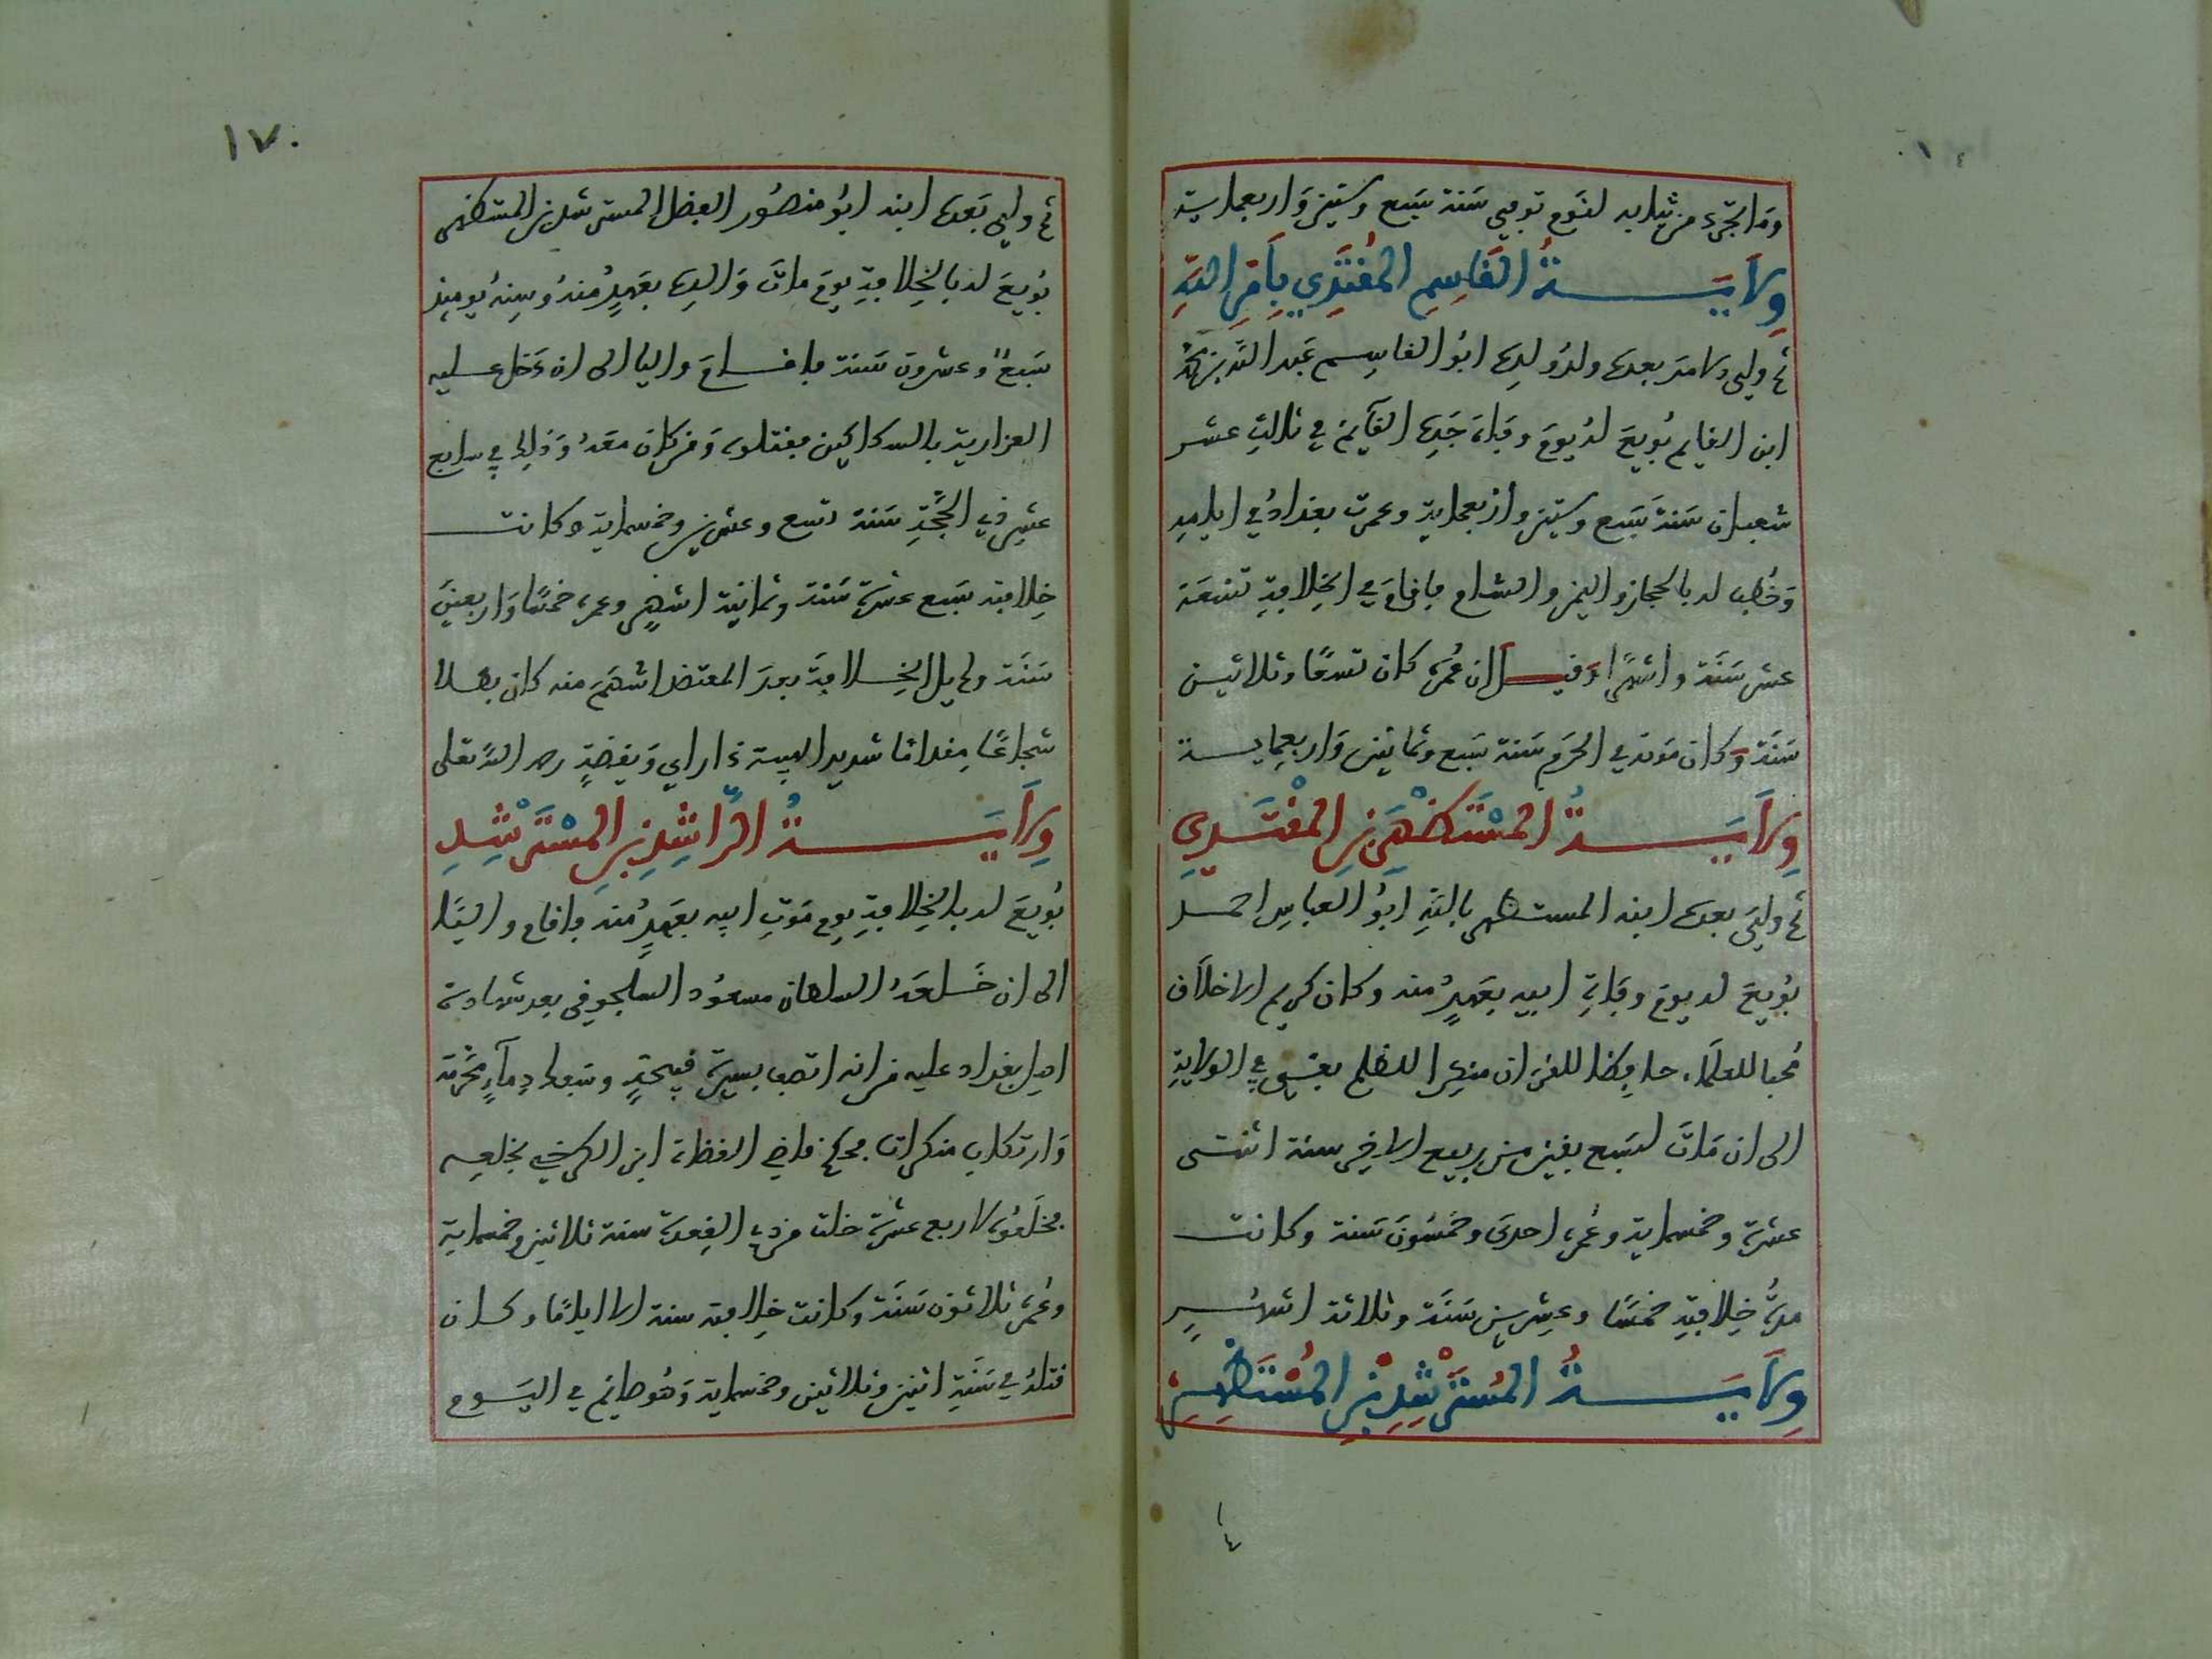 وما تجرد من ثيابه لنوم توفي سنة سبع وستين واربعماية
ولايــــة القاسم المقتدي بأمر الله
ثم ولي الامر بعده ولد ولده ابو القاسم عبد الله بن محمد
ابن القايم بويع له يوم وفاة جده القآيم في ثالث عشر
شعبان سنة سبع وستين واربعماية وعمرت بغداد في ايامه
وخطب له بالحجاز واليمن والشام فاقام في الخلافة تسعة
عشر سنة واشهرا وقيل ان عمره كان تسعا وثلاثين
سنة وكان موته في المحرم سنة سبع وثمانين واربعماية
ولايــــة المستظهر بن المقتدي
ثم ولي بعده ابنه المستظهر بالله ابو العباس احمد
بويع له يوم وفاة ابيه بعهد منه وكان كريم الاخلاق
محبا للعلماء حافظا للقران منكرا للظلم فبقي في الولاية
الى ان مات لسبع بقين من ربيع الاخر سنة اثنتى
عشرة وخمسماية وعمره احدى وخمسون سنة وكانت
مدة خلافته خمسا وعشرين سنة وثلاثة اشهر
ولايــــة المسترشد بن المستظهر
١٧٠
ثم ولي بعده ابنه ابو منصور الفضل المسترشد بن المستظهر
بويع له بالخلافة يوم مات والده بعهد منه وسنه يوميذ
سبع وعشرون سنة فاقام واليا الى ان دخل عليه
الفزارية بالسكاكين فقتلوه ومن كان معه وذلك في سابع
عشر ذي الحجة سنة تسع وعشرين وخمسماية وكانت
خلافته سبع عشرة سنة وثمانية اشهر وعمره خمسا واربعين
سنة ولم يل الخلافة بعد المعتضد اشهم منه كان بطلا
شجاعا مقداما شديد الهيبة ذا راي ويقضة رحمه الله تعلى
ولايــــة الراشد بن المسترشد
بويع له بالخلافة يوم موت ابيه بعهد منه فاقام واليا
الى ان خلعه السلطان مسعود السلجوقي بعد شهادة
اهل بغداد عليه من انه اتصف بسيرة قبيحة وسفك دمآء محرمة
وارتكاب منكرات فحكم قاضي القضاة ابن الكرخي بخلعه
فخلعوه لاربع عشرة خلت من ذي القعدة سنة ثلاثين وخمسماية
وعمره ثلاثون سنة وكانت خلافته سنة الا اياما وكان
قتله في سنة اثنين وثلاثين وخمسماية وهو صايم في اليوم